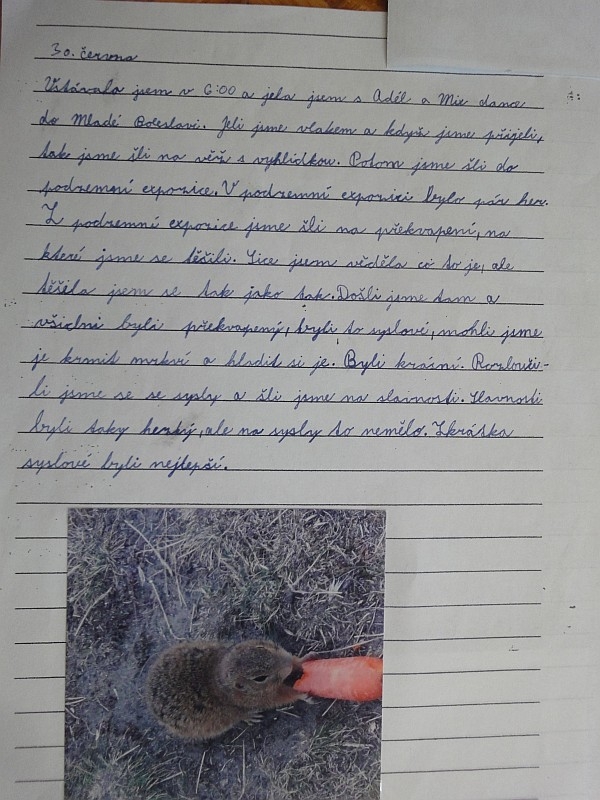 30. června
Vstávala jsem v 6:00 a jela jsem s Adél a Mie dance
do Mladé Boleslavi. Jeli jsme vlakem a když jsme přijeli,
tak jsme šli na věž s vyhlídkou. Potom jsme šli do
podzemní expozice. V podzemní expozici bylo pár her.
Z podzemní expozice jsme šli na překvapení, na
které jsme se těšili. Sice jsem věděla co to je, ale
těšila jsem se tak jako tak. Došli jsme tam a
všichni byli překvapený, byli to syslové, mohli jsme
je krmit mrkví a hladit si je. Byli krásní. Rozlouči-
li jsme se se sysly a šli jsme na slavnosti. Slavnosti
byli taky hezký, ale na sysly to nemělo. Zkrátka
syslové byli nejlepší.